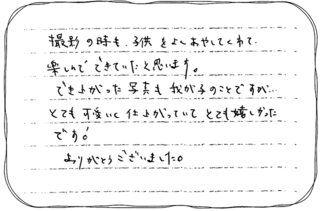 撮影の時も、子供をよくあやしてくれて、
楽しんでできていたと思います。
でき上がった写真も我が子のことですが…
とても可愛いく仕上がっていてとても嬉しかった
です！
ありがとうございました。